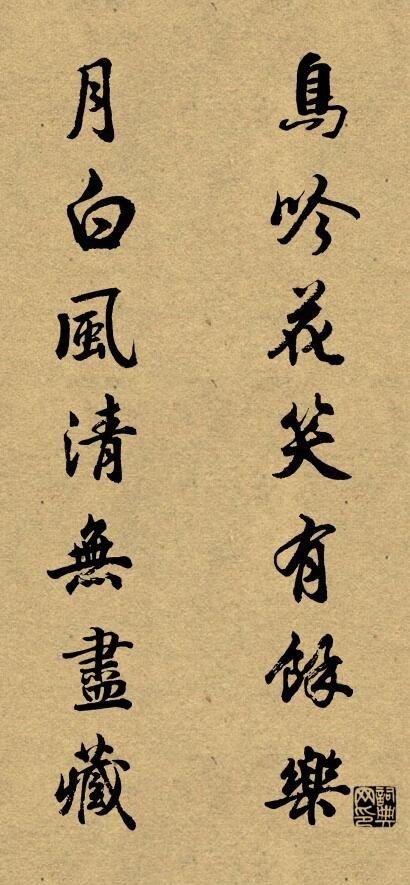 鳥吟花笑有餘樂
月白風清無盡藏
詞典网印